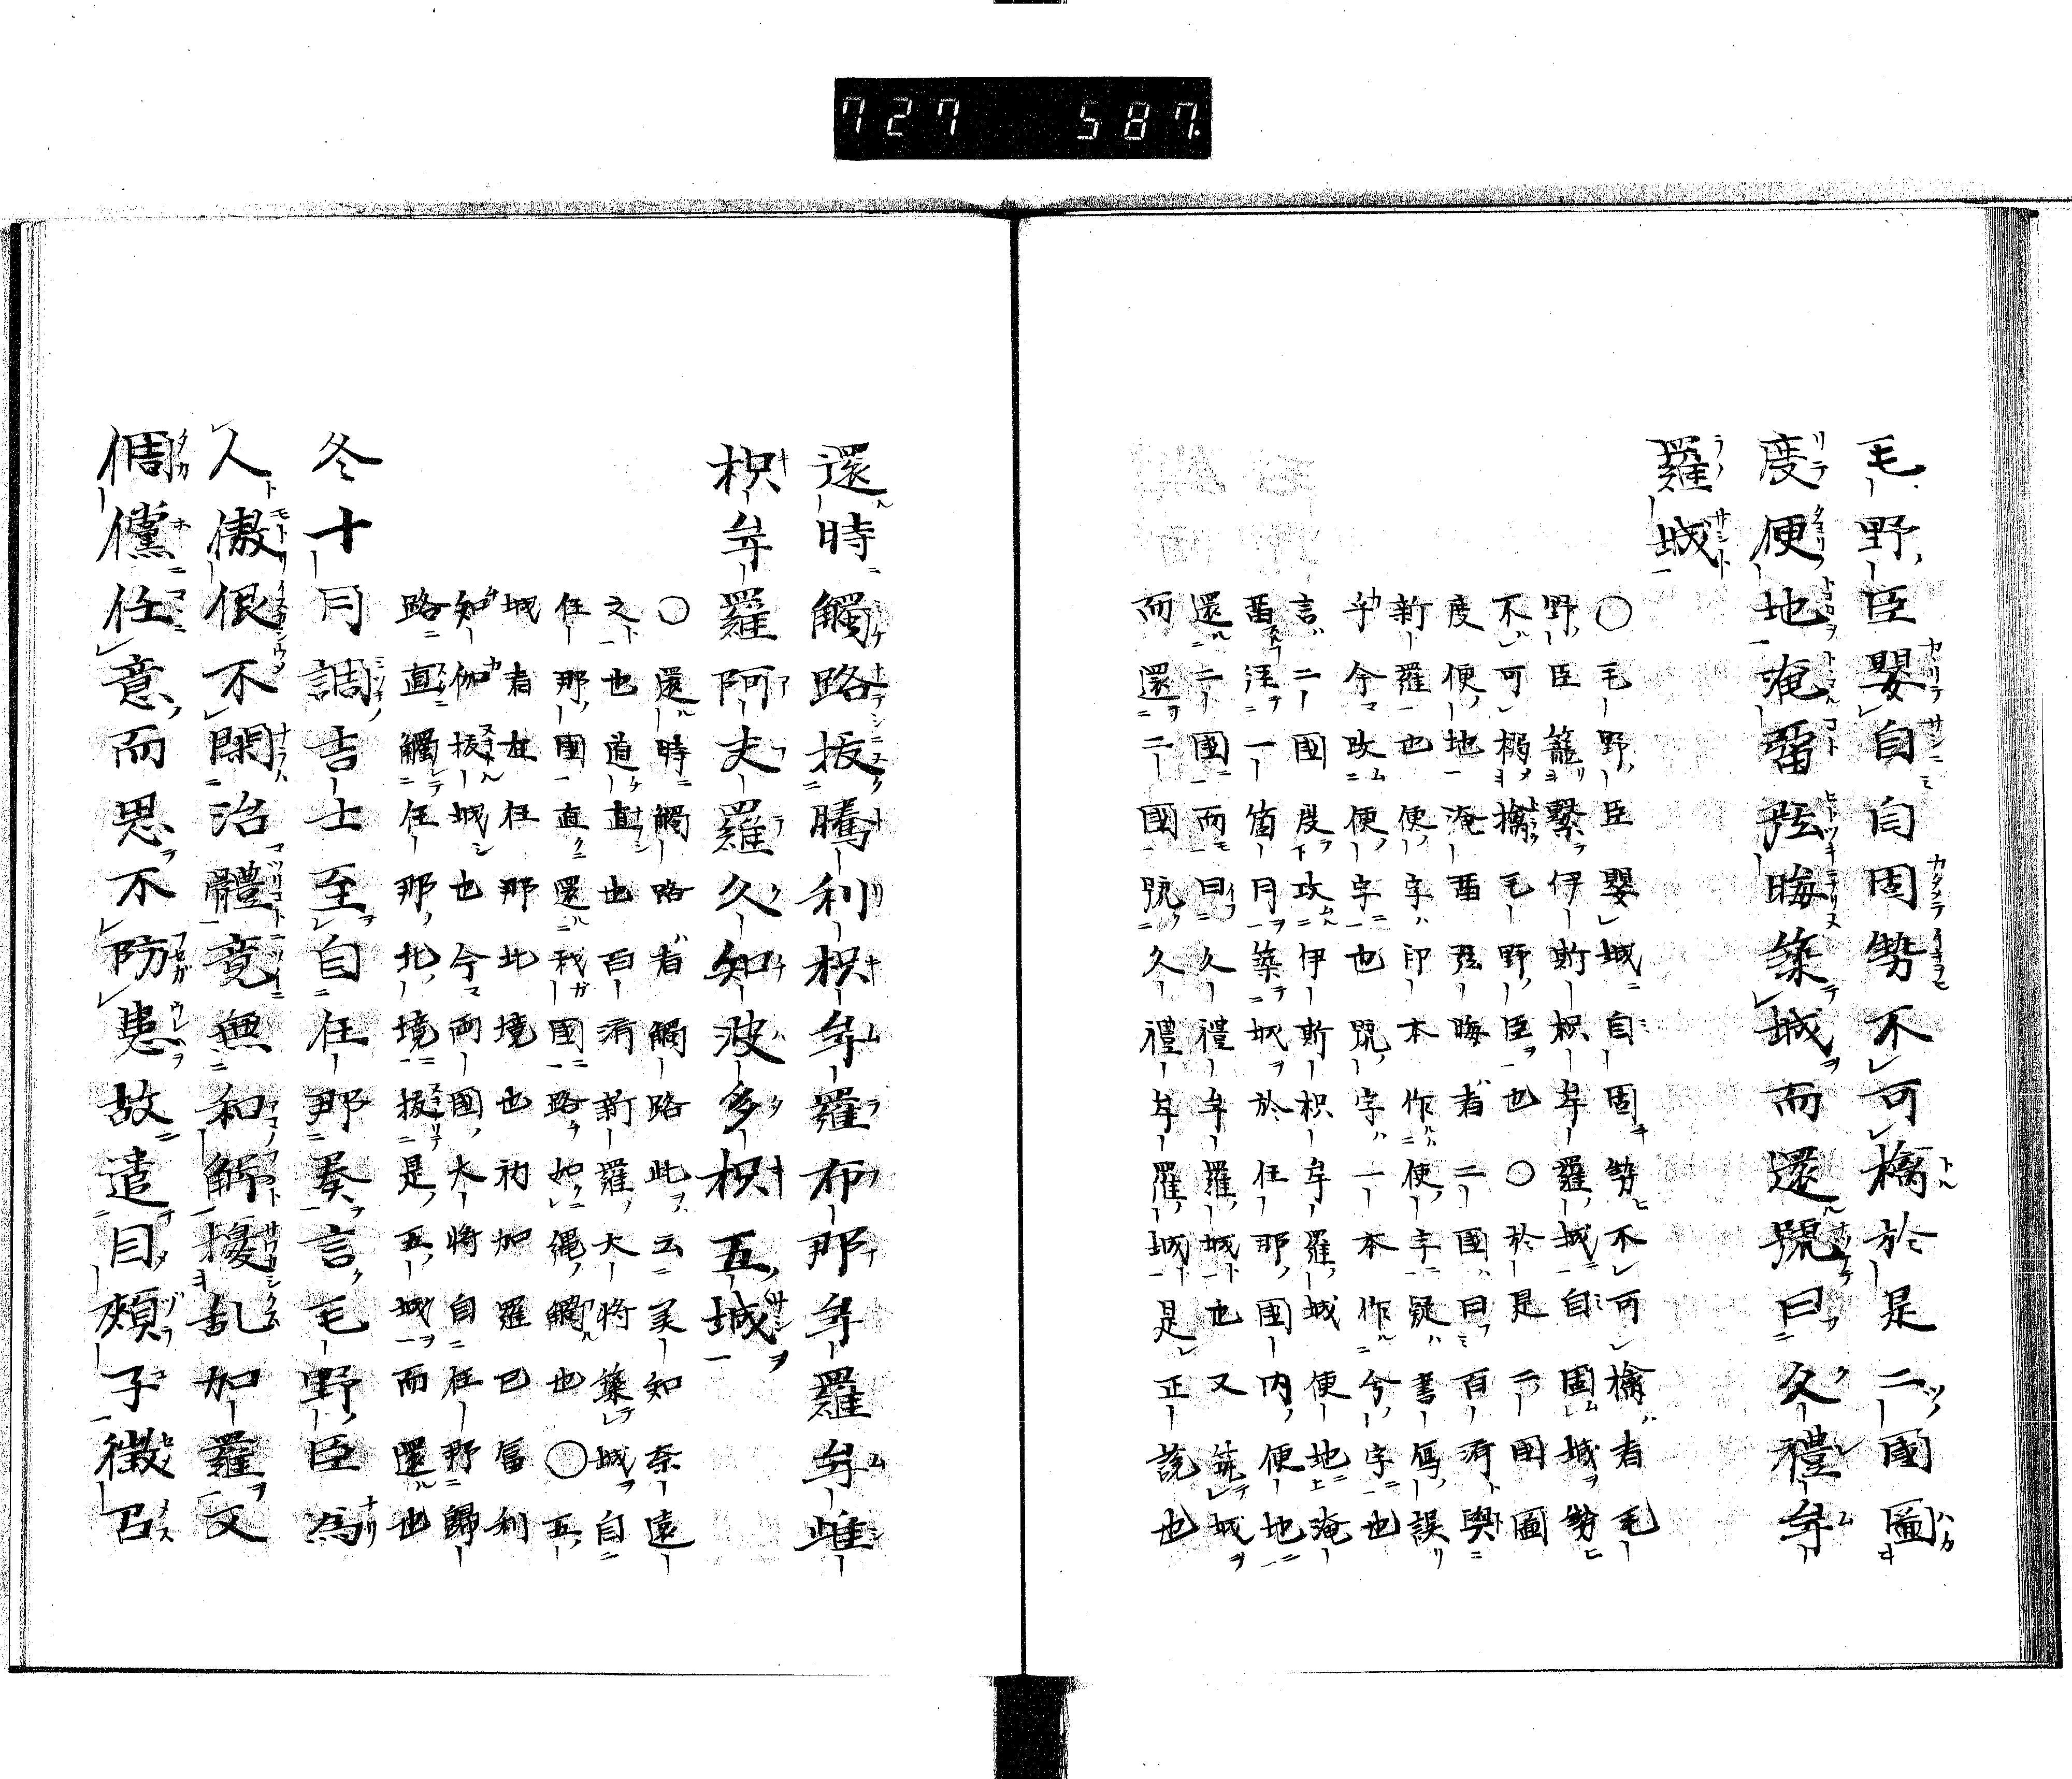 727 587.
毛野臣嬰自自固勢不可擒於是二國圖
度便地淹留弦晦築城而還號曰久禮牟
羅城
○毛野臣嬰城自固勢不可擒者毛
野臣籠繋伊斯枳牟羅城自固城勢
不可搦擒毛野臣也○於是二國圖
度便地淹留弦晦者二國曰百済與
新羅也便字印本作便字疑書寫誤
乎今改便字也號字一本作今字也
言二國度攻伊斯枳牟羅城便地淹
留涇一箇月築城於任那國内便地
還二國而曰久禮牟羅城也又築城
而還二國號久禮牟羅城是正説也
還時觸路拔騰利枳牟羅布那牟羅牟雌
枳牟羅阿夫羅久知波多枳五城
○還時觸路者觸路此云美知奈遠
之也道直也百済新羅大将築城自
任那國直還我國路如縄觸也○五
城者在任那北境也初加羅已富利
知伽拔城也今両國大将自任野歸
路直觸任那北境拔是五城而還也
冬十月調吉士至自任那奏言毛野臣為
人傲佷不閑治體竟無和解擾乱加羅文
倜儻任意而思不防患故遣目頰子徴召